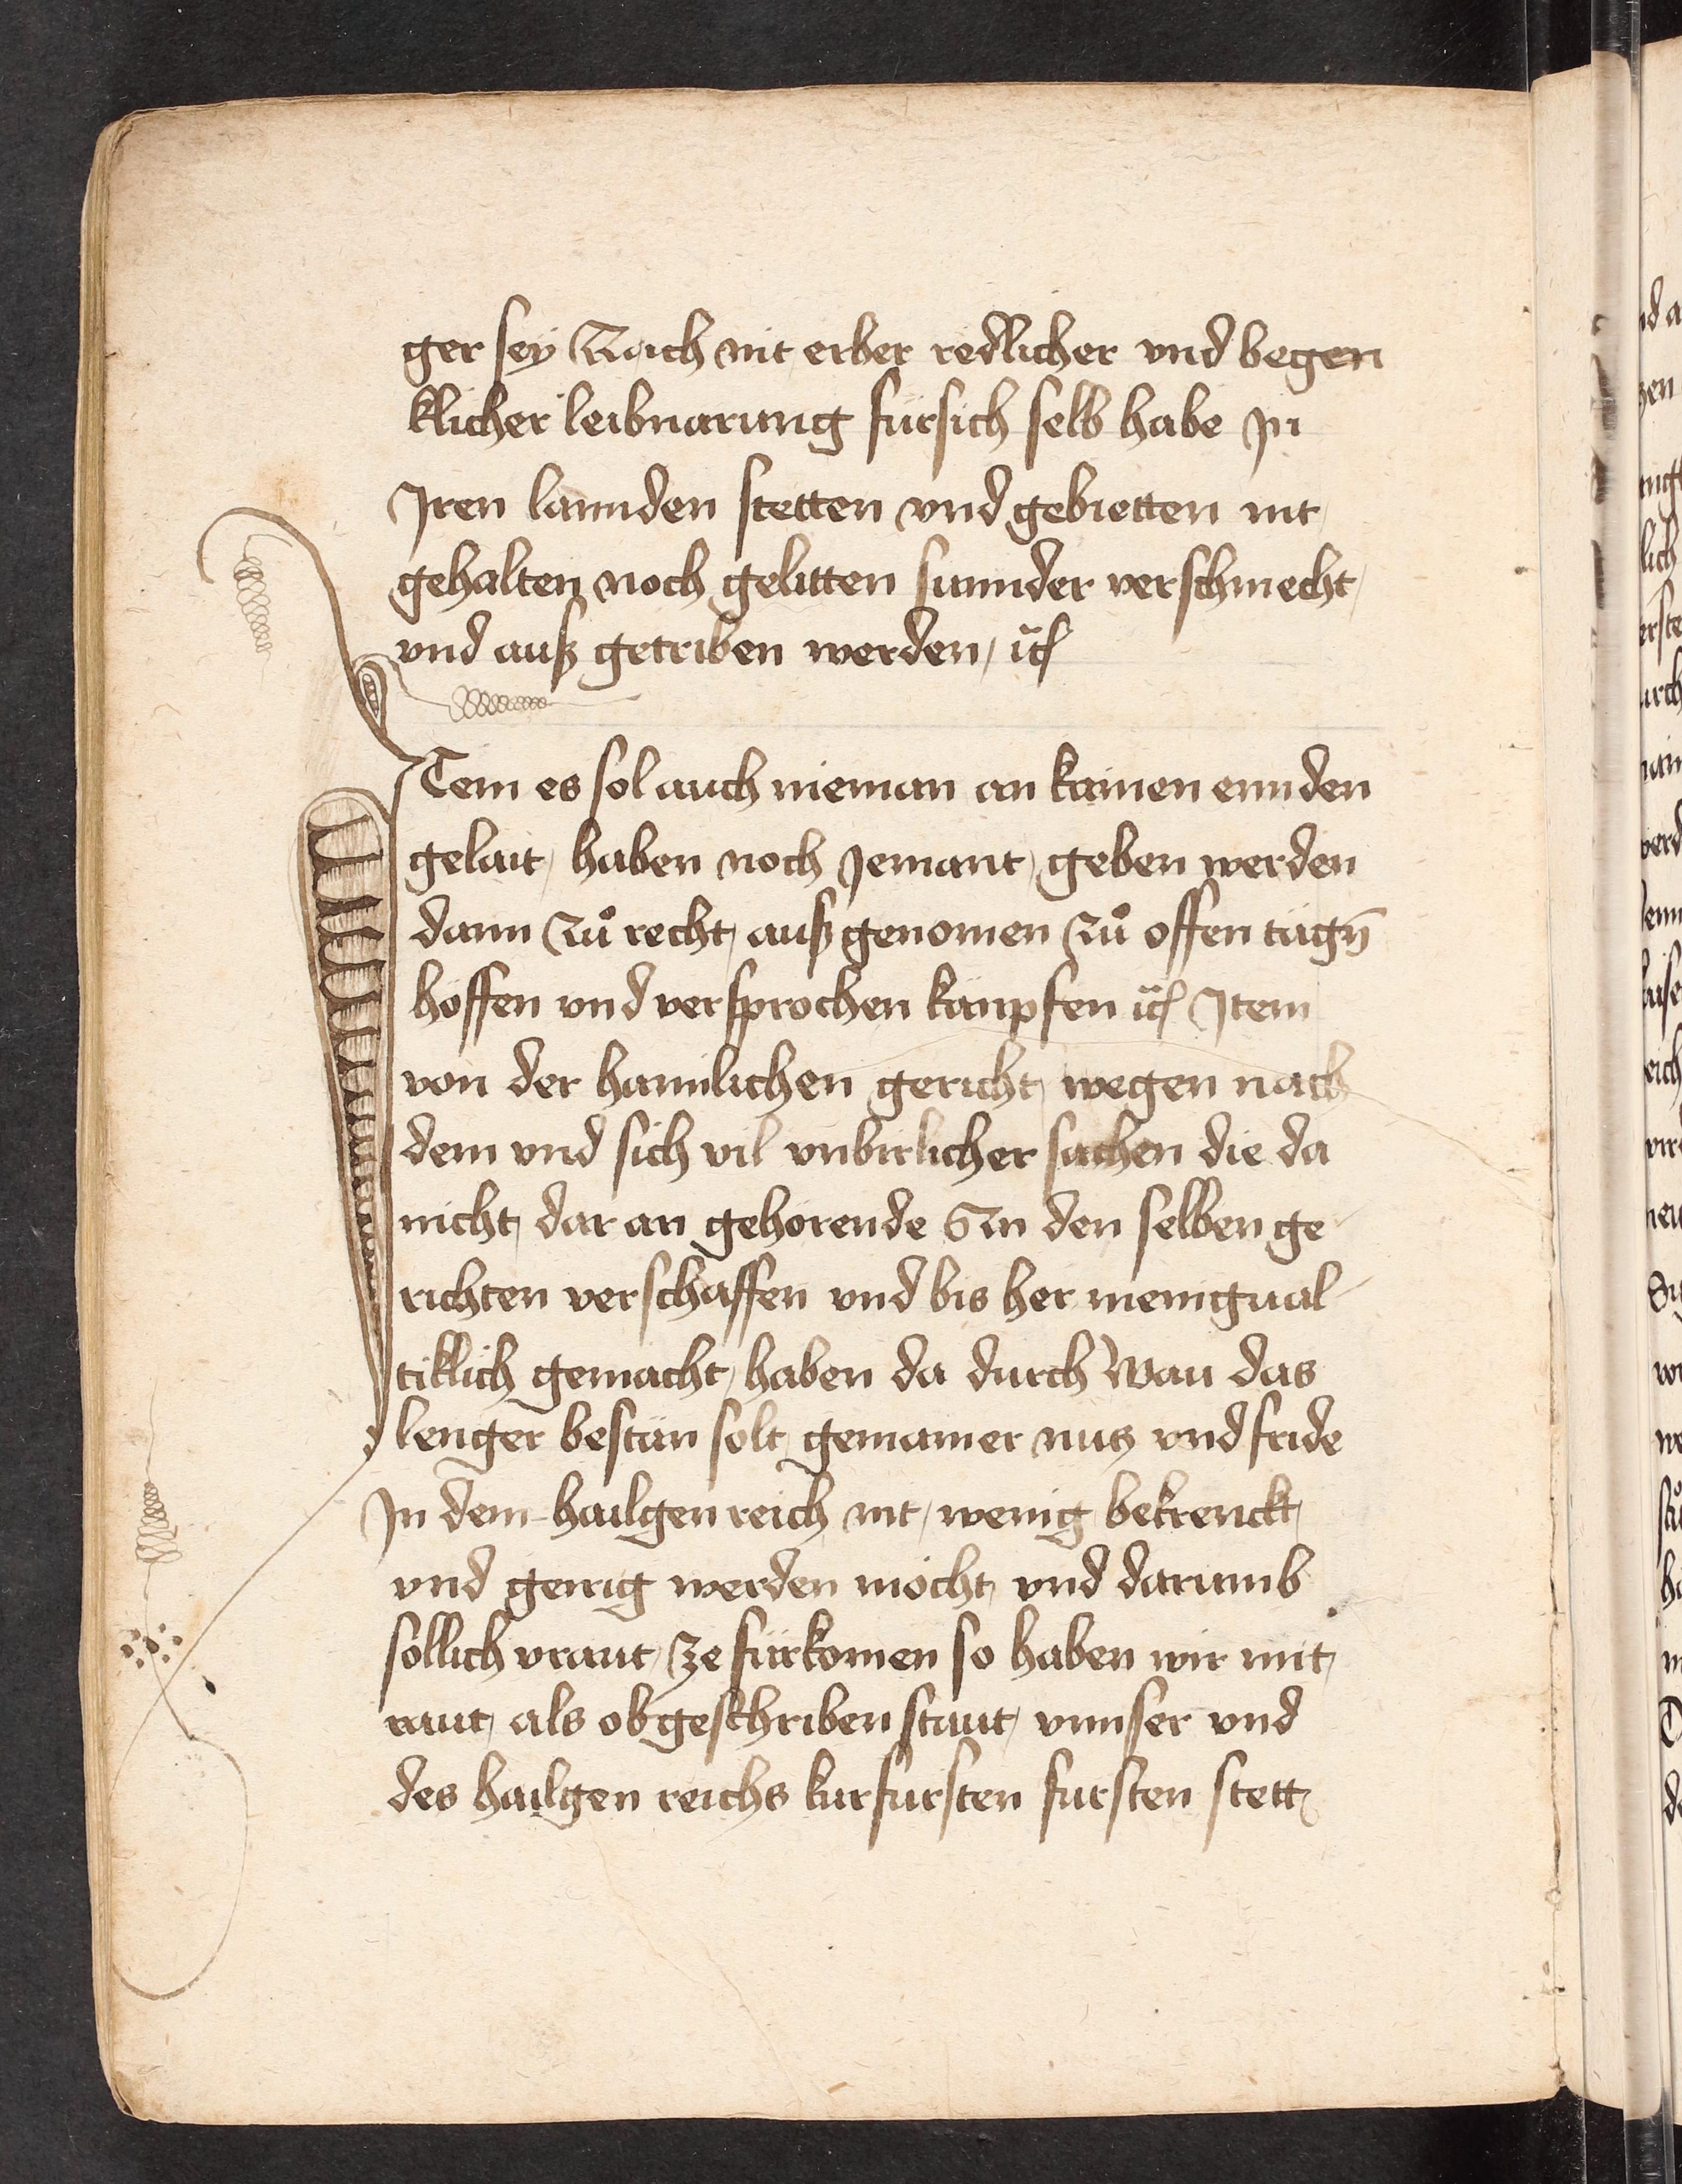 ger sey Auch nit erber redlicher vnd begen
klicher leibnarung fürsich selb habe In
Iren lannden stetten vnd gebietten nit
gehalten noch gelitten sunnder verschmecht
vnd auß getriben werden / ꝛc̃
ITem es sol auch nieman an kainen ennden
gelait haben noch Jemant geben werden
dann zů recht außgenomen zů offen tägn̄
höffen vnd versprochen kämpfen ꝛc̃ Item
von der hamlichen gericht wegen nach
dem vnd sich vil vnbirlicher sachen die da
nicht dar an gehorende Sin den selben ge
richten verschaffen vnd bis her menigual
tiklich gemacht haben da durch Wau das
lenger bestän solt gemainer nutz vnd fride
In dem hailgen reich nit wenig bekrenckt
vnd genig werden möcht vnd darumb
sollich vraut ze fürkomen so haben wir mit
raut als obgeschriben staut vnnser vnd
des hailgen reichs kurfursten fursten stett